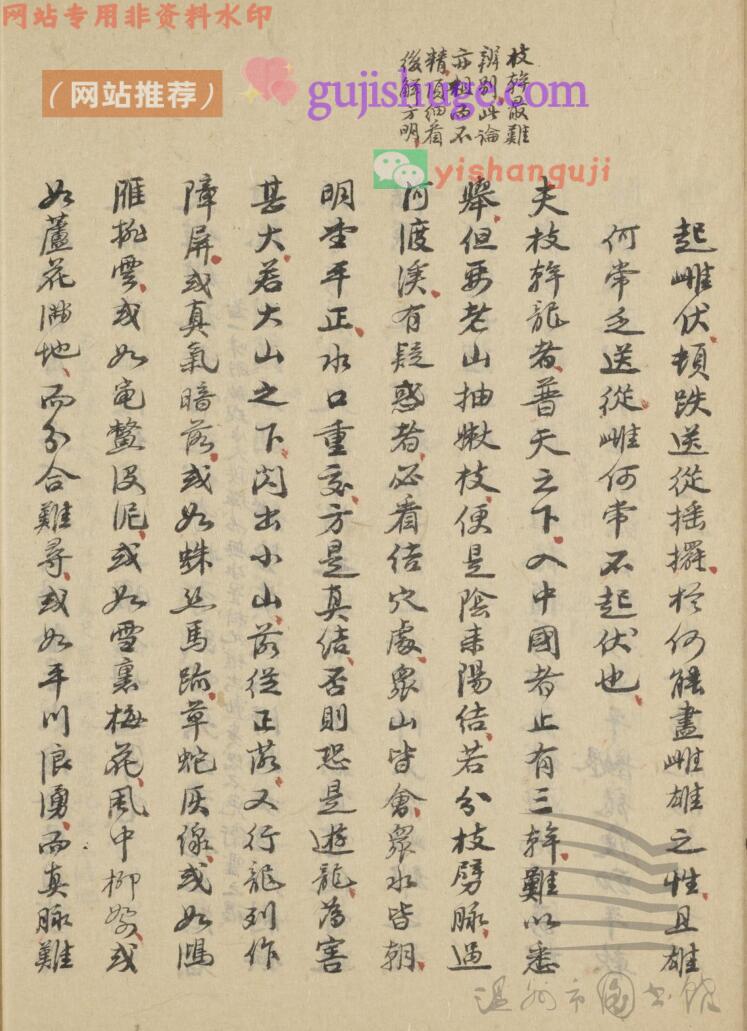 网站专用非资料水印
（网站推荐）
gujishuge.com
yishanguji
枝幹最難
辨別此論
亦粗而不
精須細看
後解方明
起雌伏頓跌送從搖擺於何能盡雌雄之性且雄
何常乏送從雌何常不起伏也
夫枝幹龍者普天之下入中國者止有三幹難以悉
舉但要老山抽嫩枝便是陰來陽結若分枝劈脉過
河渡溪有疑惑者必看結穴處衆山皆會衆水皆朝
明堂平正水口重交方是真結否則恐是遊龍為害
甚大若大山之下閃出小山落從正落又行龍列作
障屏或真氣暗落或如蛛絲馬跡草蛇灰線或如鴻
雁排雲或如黿鱉沒泥或如雪裏梅花風中柳絮或
如蘆花滿地而分合難尋或如平川浪湧而真脉難
温州市图书馆